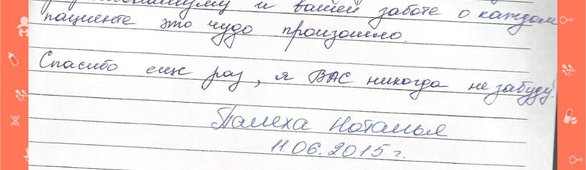 и вашей заботе о каждом
пациенте это чудо произошло.
Спасибо еще раз, я ВАС никогда не забуду!
Наталья
11.06.2015 г.